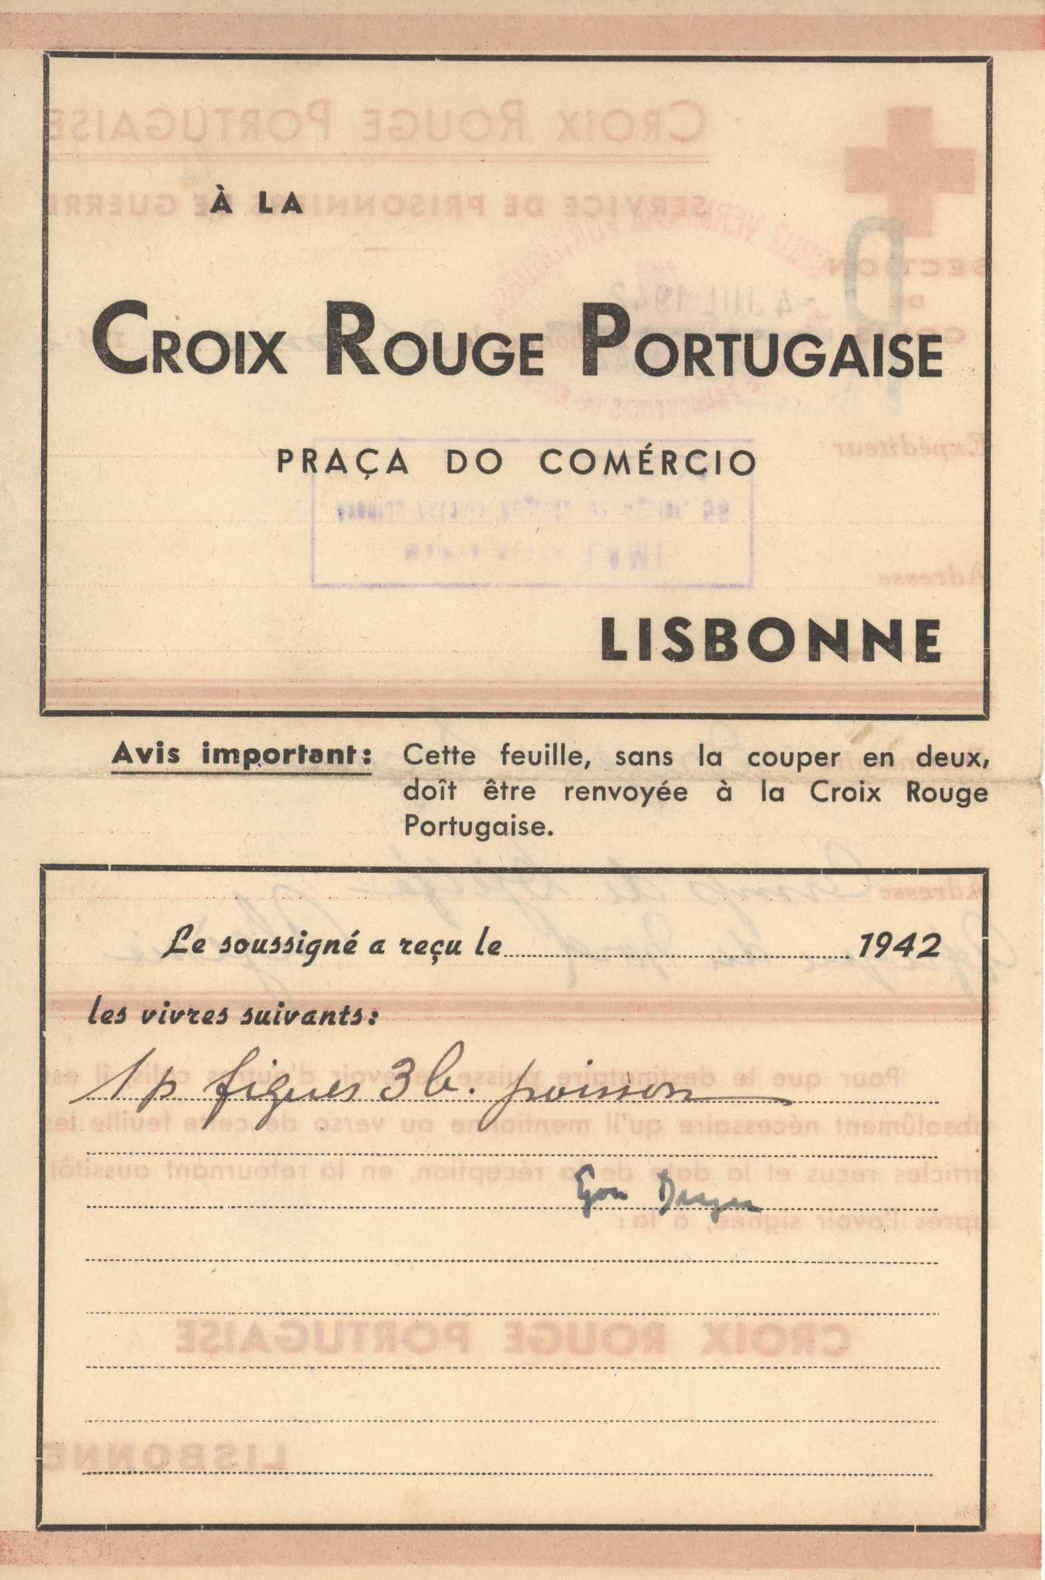 À LA
CROIX ROUGE PORTUGAISE
PRAÇA DO COMÉRCIO
LISBONNE
Avis important: Cette feuille, sans la couper en deux,
doît être renvoyée à la Croix Rouge
Portugaise.
Le soussigné a reçu le 1942
les vivres suivants:
1 p figues 3 b. poisson
Egon